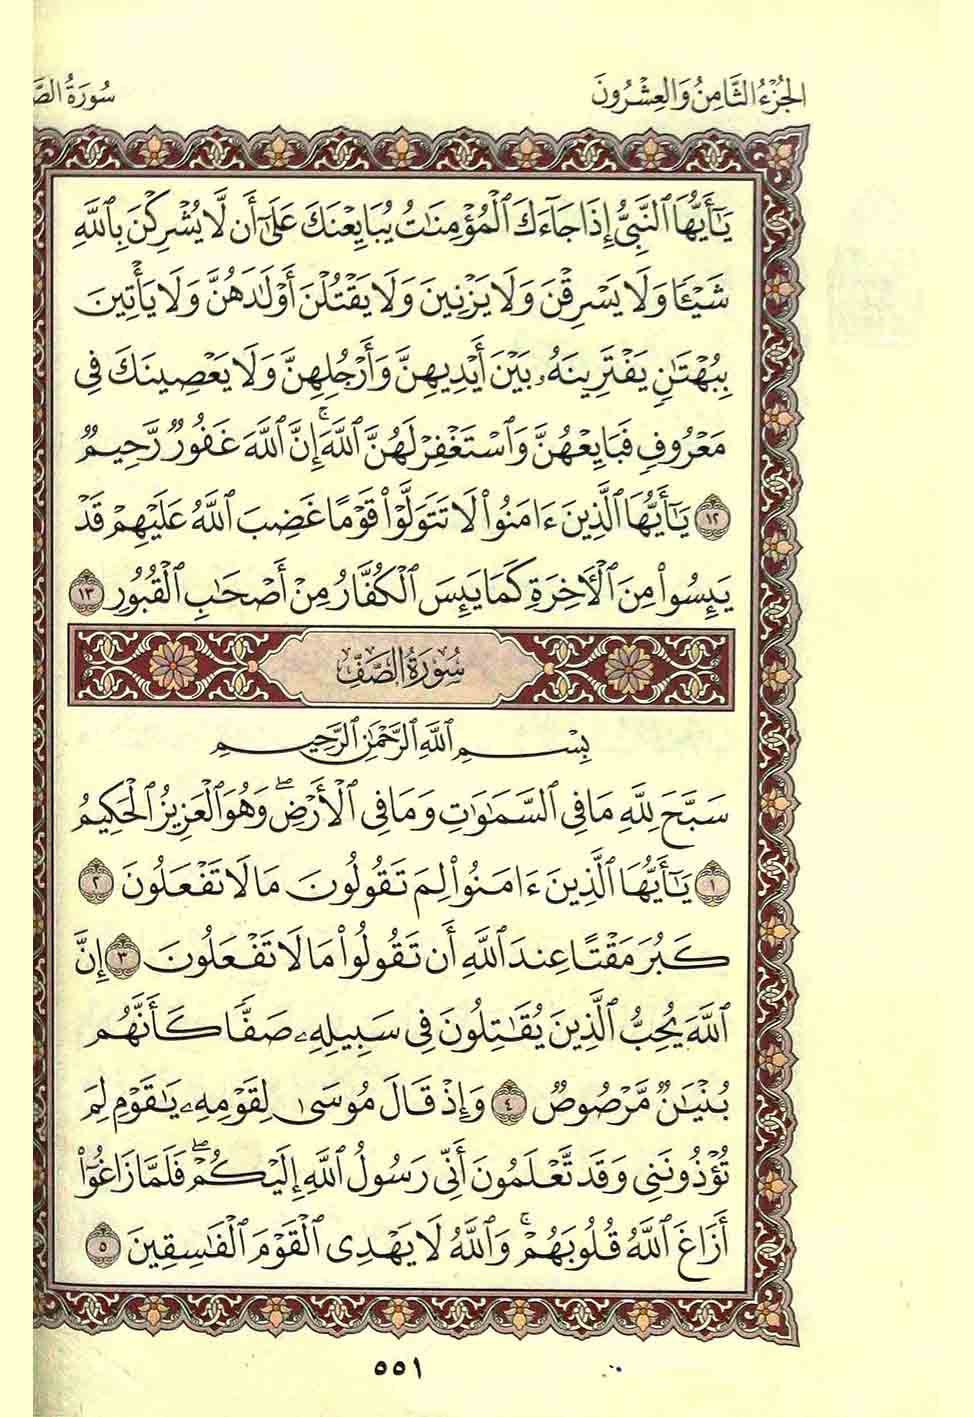 الجُزْءُ الثَّامِنُ وَالعِشْرُونَ
سُورَةُ الصَّ
يَـٰٓأَيُّهَا ٱلنَّبِىُّ إِذَا جَآءَكَ ٱلْمُؤْمِنَـٰتُ يُبَايِعْنَكَ عَلَىٰٓ أَن لَّا يُشْرِكْنَ بِٱللَّهِ
شَيْـًٔا وَلَا يَسْرِقْنَ وَلَا يَزْنِينَ وَلَا يَقْتُلْنَ أَوْلَـٰدَهُنَّ وَلَا يَأْتِينَ
بِبُهْتَـٰنٍ يَفْتَرِينَهُۥ بَيْنَ أَيْدِيهِنَّ وَأَرْجُلِهِنَّ وَلَا يَعْصِينَكَ فِى
مَعْرُوفٍ فَبَايِعْهُنَّ وَٱسْتَغْفِرْ لَهُنَّ ٱللَّهَ ۚ إِنَّ ٱللَّهَ غَفُورٌ رَّحِيمٌ
١٢ يَـٰٓأَيُّهَا ٱلَّذِينَ ءَامَنُوا۟ لَا تَتَوَلَّوْا۟ قَوْمًا غَضِبَ ٱللَّهُ عَلَيْهِمْ قَدْ
يَئِسُوا۟ مِنَ ٱلْـَٔاخِرَةِ كَمَا يَئِسَ ٱلْكُفَّارُ مِنْ أَصْحَـٰبِ ٱلْقُبُورِ ١٣
سُورَةُ الصَّفِّ
بِسْمِ ٱللَّهِ ٱلرَّحْمَـٰنِ ٱلرَّحِيمِ
سَبَّحَ لِلَّهِ مَا فِى ٱلسَّمَـٰوَٰتِ وَمَا فِى ٱلْأَرْضِ ۖ وَهُوَ ٱلْعَزِيزُ ٱلْحَكِيمُ
١ يَـٰٓأَيُّهَا ٱلَّذِينَ ءَامَنُوا۟ لِمَ تَقُولُونَ مَا لَا تَفْعَلُونَ ٢
كَبُرَ مَقْتًا عِندَ ٱللَّهِ أَن تَقُولُوا۟ مَا لَا تَفْعَلُونَ ٣ إِنَّ
ٱللَّهَ يُحِبُّ ٱلَّذِينَ يُقَـٰتِلُونَ فِى سَبِيلِهِۦ صَفًّا كَأَنَّهُم
بُنْيَـٰنٌ مَّرْصُوصٌ ٤ وَإِذْ قَالَ مُوسَىٰ لِقَوْمِهِۦ يَـٰقَوْمِ لِمَ
تُؤْذُونَنِى وَقَد تَّعْلَمُونَ أَنِّى رَسُولُ ٱللَّهِ إِلَيْكُمْ ۖ فَلَمَّا زَاغُوٓا۟
أَزَاغَ ٱللَّهُ قُلُوبَهُمْ ۚ وَٱللَّهُ لَا يَهْدِى ٱلْقَوْمَ ٱلْفَـٰسِقِينَ ٥
٥٥١